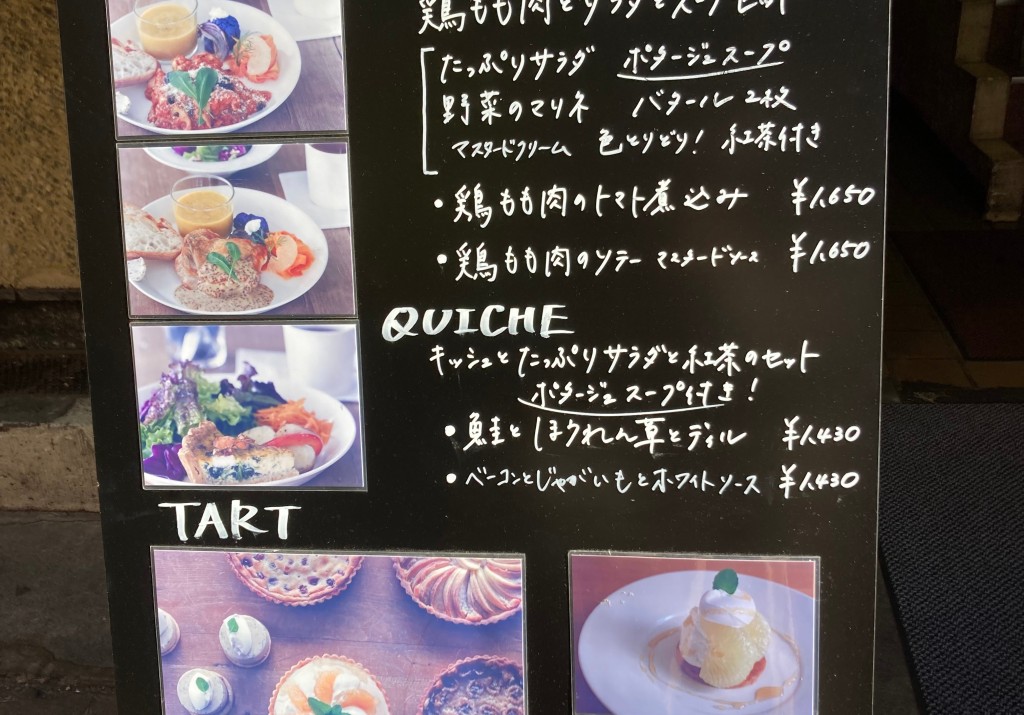 鶏もも肉とサラダとスープセット
たっぷりサラダ ポタージュスープ
野菜のマリネ バタール2枚
マスタードクリーム 色とりどり! 紅茶付き
・鶏もも肉のトマト煮込み ¥1,650
・鶏もも肉のソテー マスタードソース ¥1,650
QUICHE
キッシュとたっぷりサラダと紅茶のセット
ポタージュスープ付き!
・鮭とほうれん草とディル ¥1,430
・ベーコンとじゃがいもとホワイトソース ¥1,430
TART